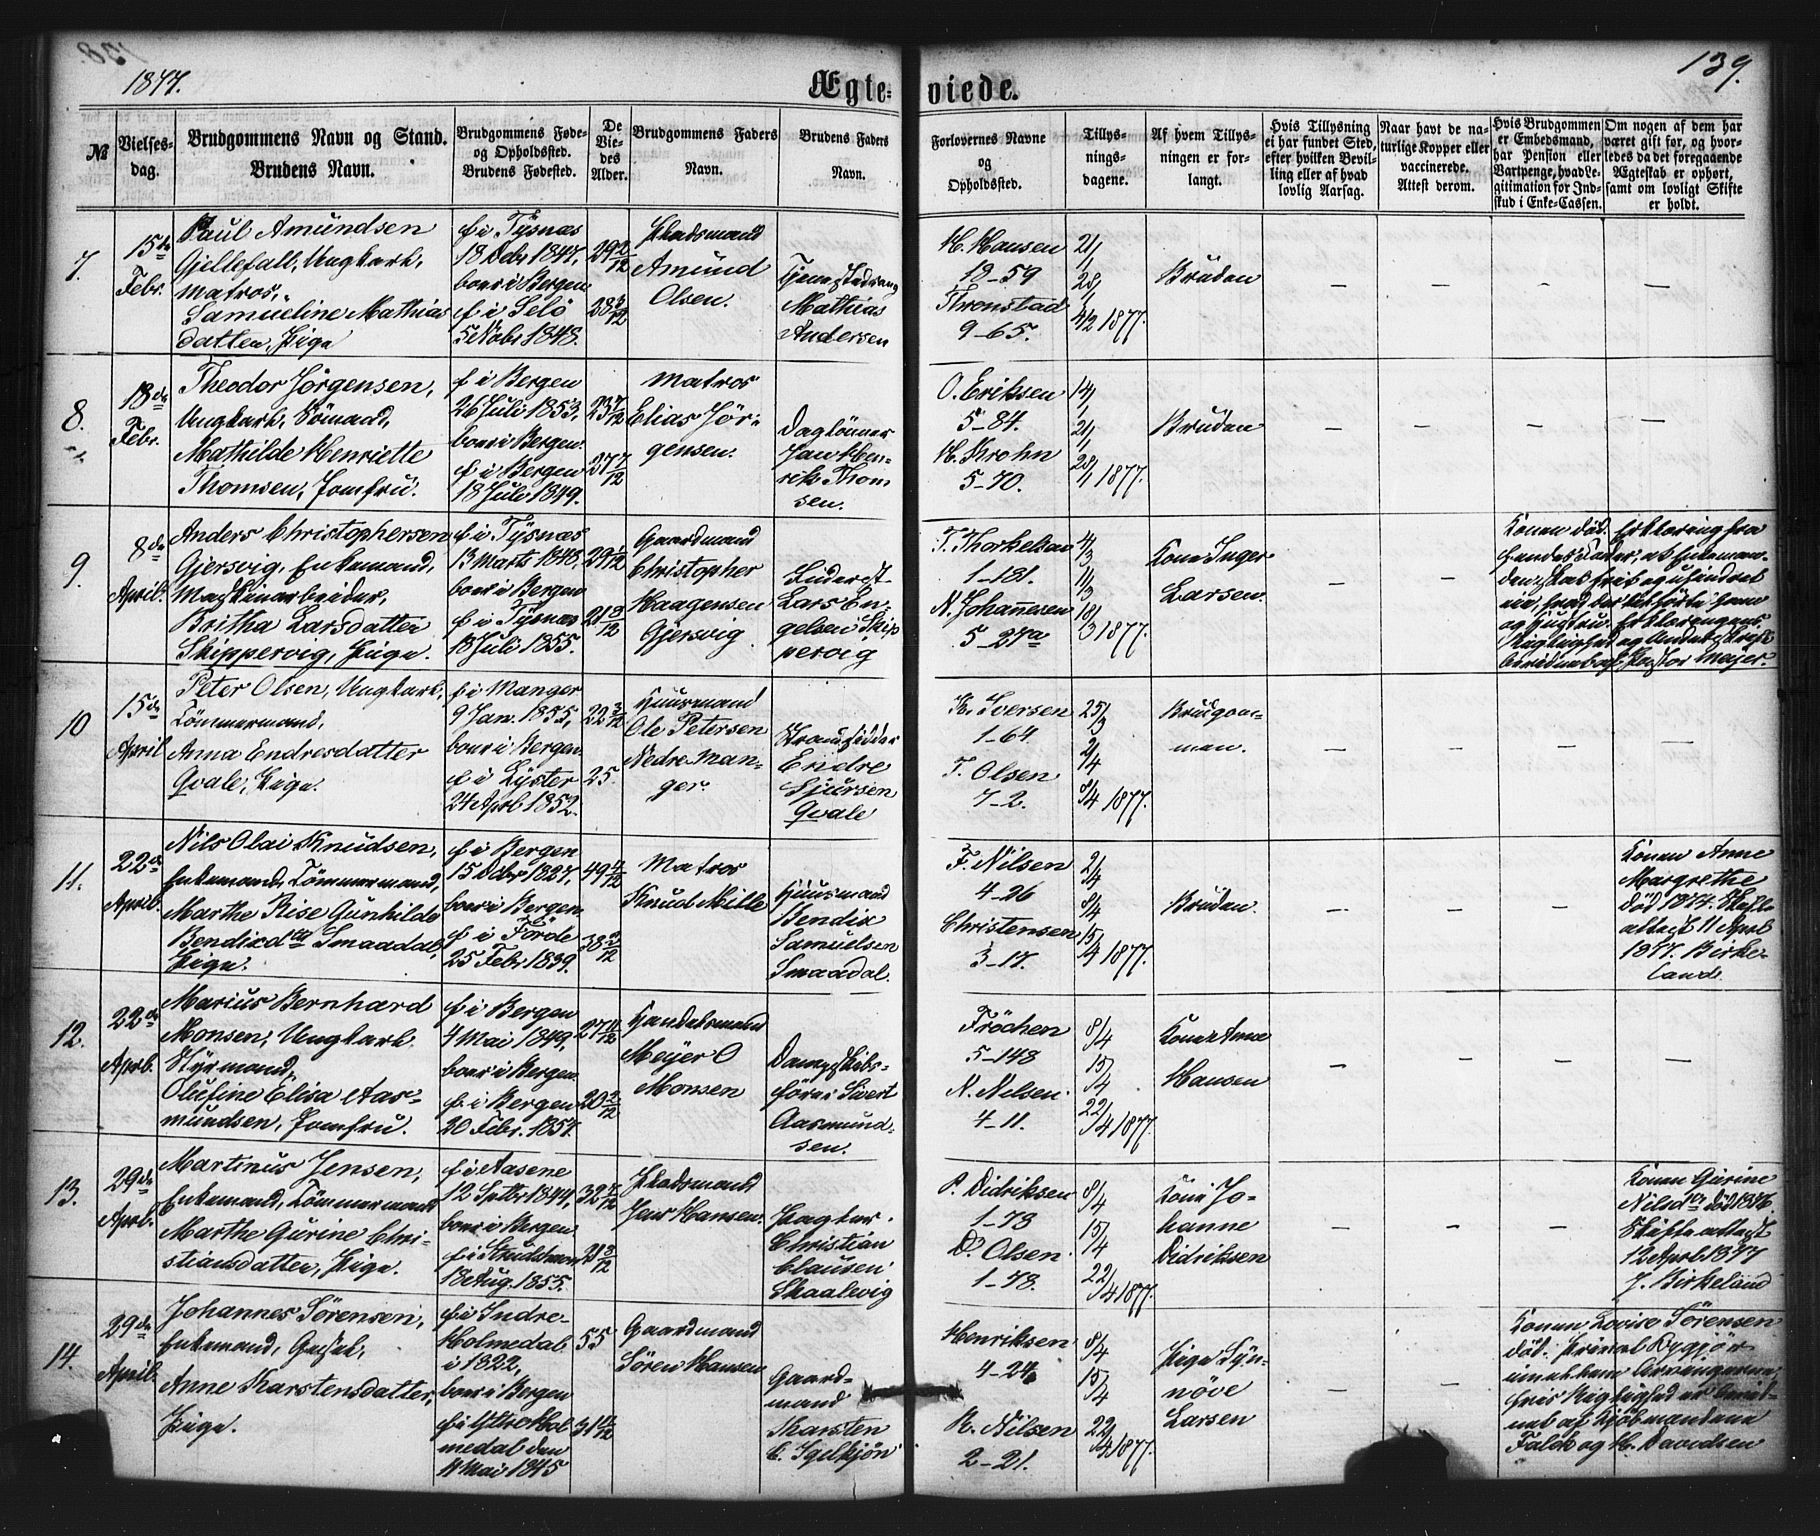 1877.
Ægte-
viede.
139.
№
Vielses-
dag.
Brudgommens Navn og Stand.
Brudens Navn.
Brudgommens Føde-
og Opholdssted.
Brudens Fødested.
De
Vie-
des
Alder.
Brudgommens Faders
Navn.
Brudens Faders
Navn.
Forlovernes Navne
og
Opholdssted.
Tillys-
nings-
dagene.
Af hvem Tillys-
ningen er for-
langt.
Hvis Tillysning
ei har fundet Sted,
efter hvilken Bevil-
ling eller af hvad
lovlig Aarsag.
Naar havt de na-
turlige Kopper eller
vaccinerede.
Attest derom.
Hvis Brudgommen
er Embedsmand,
har Pension eller
Vartpenge, hvad Le-
gitimation for Ind-
skud i Enke-Cassen.
Om nogen af dem har
været gift før, og hvor-
ledes da det foregaaende
Ægteskab er ophørt,
samt om lovligt Skifte
er holdt.
7.
15de
Febr.
Paul Amundsen
Gjellefall, Ungkarl,
Matros,
Samueline Mathias
datter, Pige
f i Tysnæs
18 Octbr 1847,
boer i Bergen
f i Selö
5 Novbr 1848.
29 2/12
28 3/12
Pladsmand
Amund
Olsen.
Mathias
Andersen
H. Hansen
19-59
Thronstad
9-65.
21/1
28/1
4/2 1877.
Bruden
8.
18de
Febr.
Theodor Jørgensen,
Ungkarl, Sömand,
Mathilde Henriette
Thomsen, Jomfru.
f i Bergen
26 Juli 1853,
boer i Bergen.
f i Bergen
18 Juli 1849.
23 7/12
27 7/12
Matros
Elias Jör-
gensen.
Daglönner
Jan Hen-
rik Thom
sen.
O. Eriksen
5-84.
H. Krohn
5-70.
14/1
21/1
28/1 1877.
Bruden
9.
8de
April.
Anders Christophersen
Gjersvig, Enkemand,
Maskinarbeider,
Britha Larsdatter
Skippervig, Pige.
f i Tysnæs
13 Marts 1848,
boer i Bergen
f i Tysnæs
18 Juli 1855.
29 1/12
21 9/12
Gaardmand
Christopher
Haagensen
Gjersvig
Inderst
Lars En-
gelsen Skip
pervig
T. Thorkelsen
1-181.
N. Johannesen
5-27a
4/3
11/3
18/3 1877.
Kone Inger
Larsen.
Konen död. Erklæring fra
10
15de
April
Peter Olsen, Ungkarl,
Tömmermand,
Anna Endresdatter
Qvale, Pige.
f i Manger
9 Jan. 1855,
boer i Bergen
f i Lyster
24 April 1852.
22 3/12
25.
Huusmand
Ole Petersen
Nedre Man-
ger
Strandsidder
Endre
Sjursen
Qvale
K. Iversen
1-64.
T. Olsen
7-2.
25/3
2/4
8/4 1877.
Brudgom-
men.
11.
22de
April.
Nils Olai Knudsen,
Enkemand, Tömmermand,
Marthe Rise Gunhilde
Bendixda Smaadal,
Pige.
f i Bergen
15 Octbr 1827,
boer i Bergen.
f i Förde
25 Febr 1839.
49 4/12
38 2/12
Matros
Knud Mille
Huusmand
Bendix
Samuelsen
Smaadal.
F. Nilsen
4-26
Christensen
3-17.
2/4
8/4
15/4 1877.
Bruden.
Konen Anne
Margrethe
död 1874. Skifte
attest 11 April
1877. Birke-
land.
12.
22de
Aprl.
Marius Bernhard
Monsen, Ungkarl.
Styrmand,
Olufine Elisa Aas-
mundsen, Jomfru.
f i Bergen
4 Mai 1849,
boer i Bergen
f. i Bergen
20 Febr. 1857.
27 11/12
20 2/12
Handelsmand
Meyer O
Monsen
Dampskibs-
förer Sivert
Aasmund-
sen.
Fröchen
5-148
N. Nilsen.
4-11.
8/4
15/4
22/4 1877.
Kone Anne
Hansen
13.
29de
Aprl.
Martinus Jensen,
Enkemand, Tömmermand
Marthe Gurine Chri-
stiansdatter, Pige.
f i Aasene
12 Septbr 1844,
boer i Bergen
18 Aug. 1855.
32 7/12
21 8/12
Pladsmand
Jens Hansen.
Christian
Clausen
Skaalevig
P. Didriksen
1-73
D. Olsen.
1-78.
8/4
15/4
22/4 1877.
Kone Jo-
hanne
Didriksen
Konen Gurine
Nilsdtr död 1876.
Skifteattest
12 April 1877
J. Birkeland
14.
29de
April.
Johannes Sörensen,
Enkemand,
Anne Karstensdatter,
Pige.
f i Indre-
Holmedal
i 1822,
boer i Bergen
f i Ythre Hol
medal den
4 Mai 1845
55
31 11/12
Gaardmand
Sören Hansen
Gaard-
mand
Karsten
Henriksen
4-24
R. Nilsen
2-21.
8/4
15/4
22/4 1877.
Pige Syn-
növe
Larsen
Konen Lovise Sörensen
död.
Falck og H. Davidsen